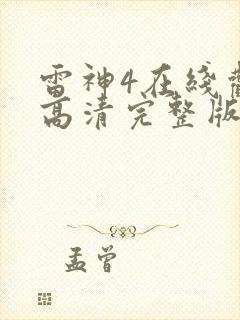 雷神4在线
高清完整版
孟曾